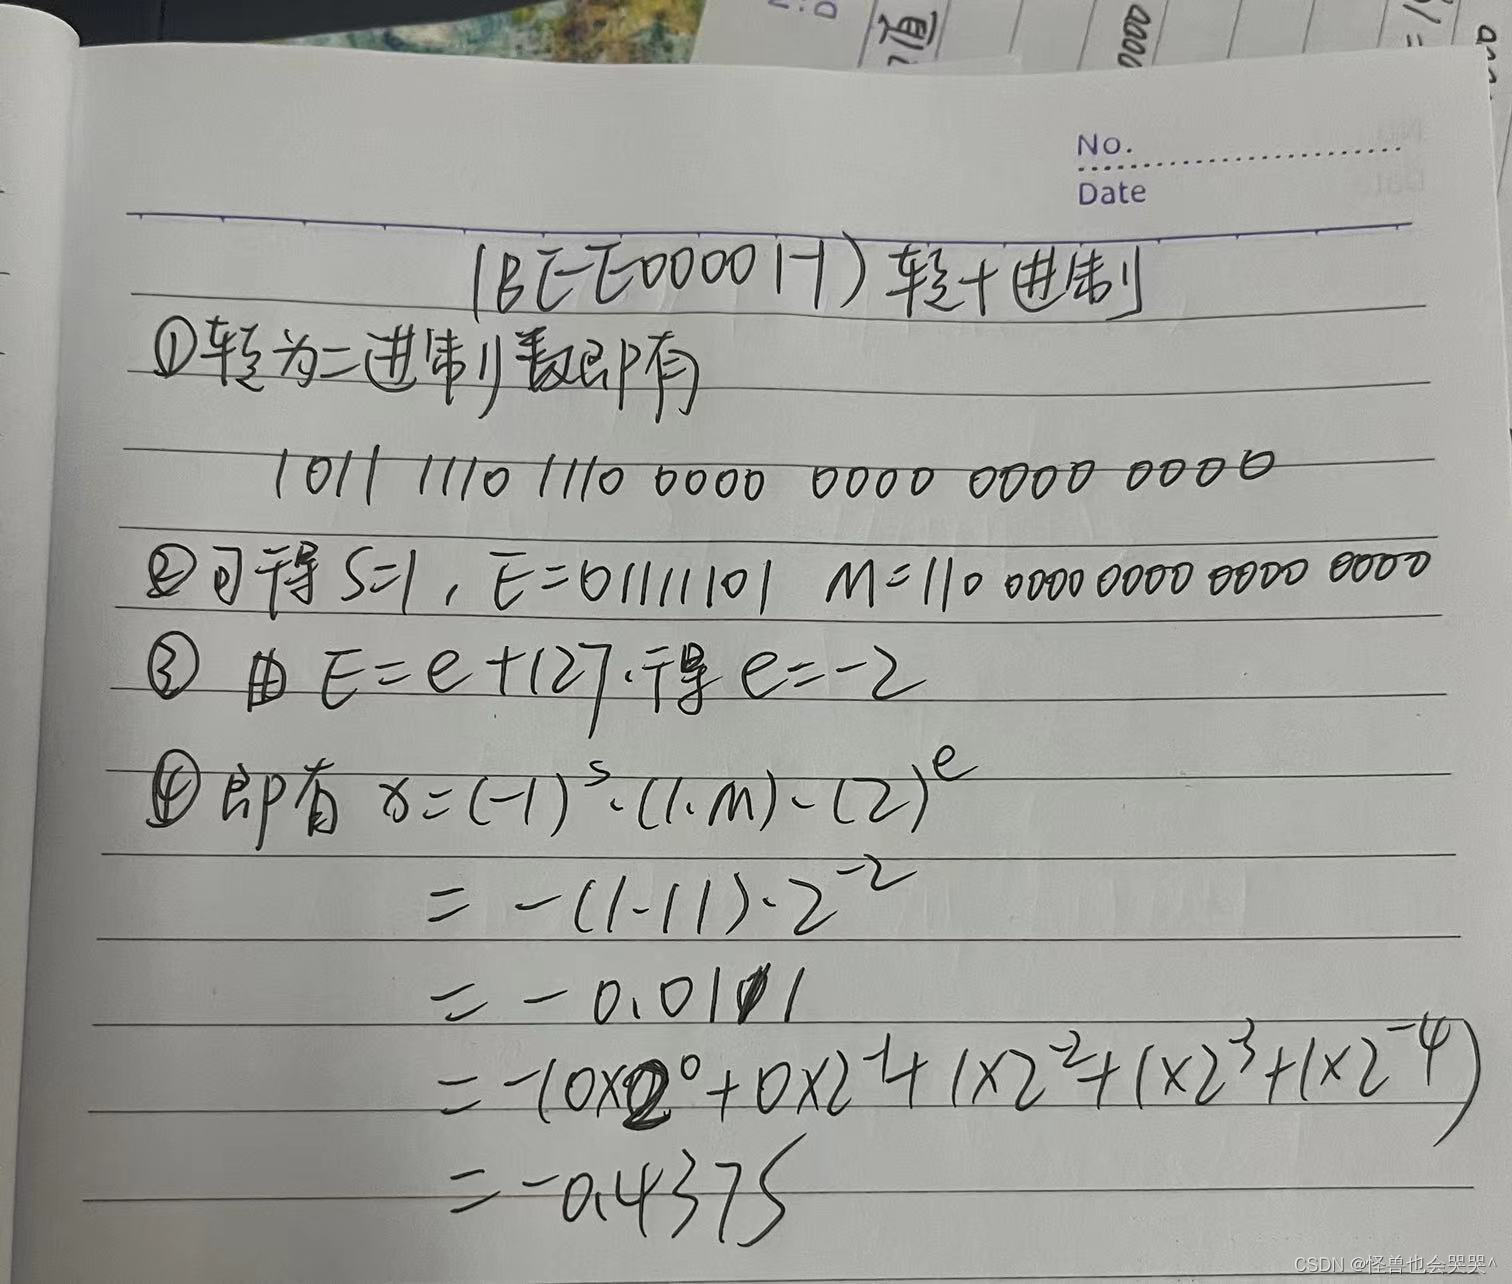 No.
Date
(BEE0000H)转十进制
①转为二进制数即有
1011 1110 1110 0000 0000 0000 0000
②可得S=1, E=01111101 M=110 0000 0000 0000 0000
③ 由 E=e+127.得 e=-2
④ 即有 x=(-1)^s·(1.M)·(2)^e
= -(1.11)·2^-2
= -0.0111
= -(0×2^0+0×2^-1+1×2^-2+1×2^-3+1×2^-4)
= -0.4375
CSDN @怪兽也会哭哭^